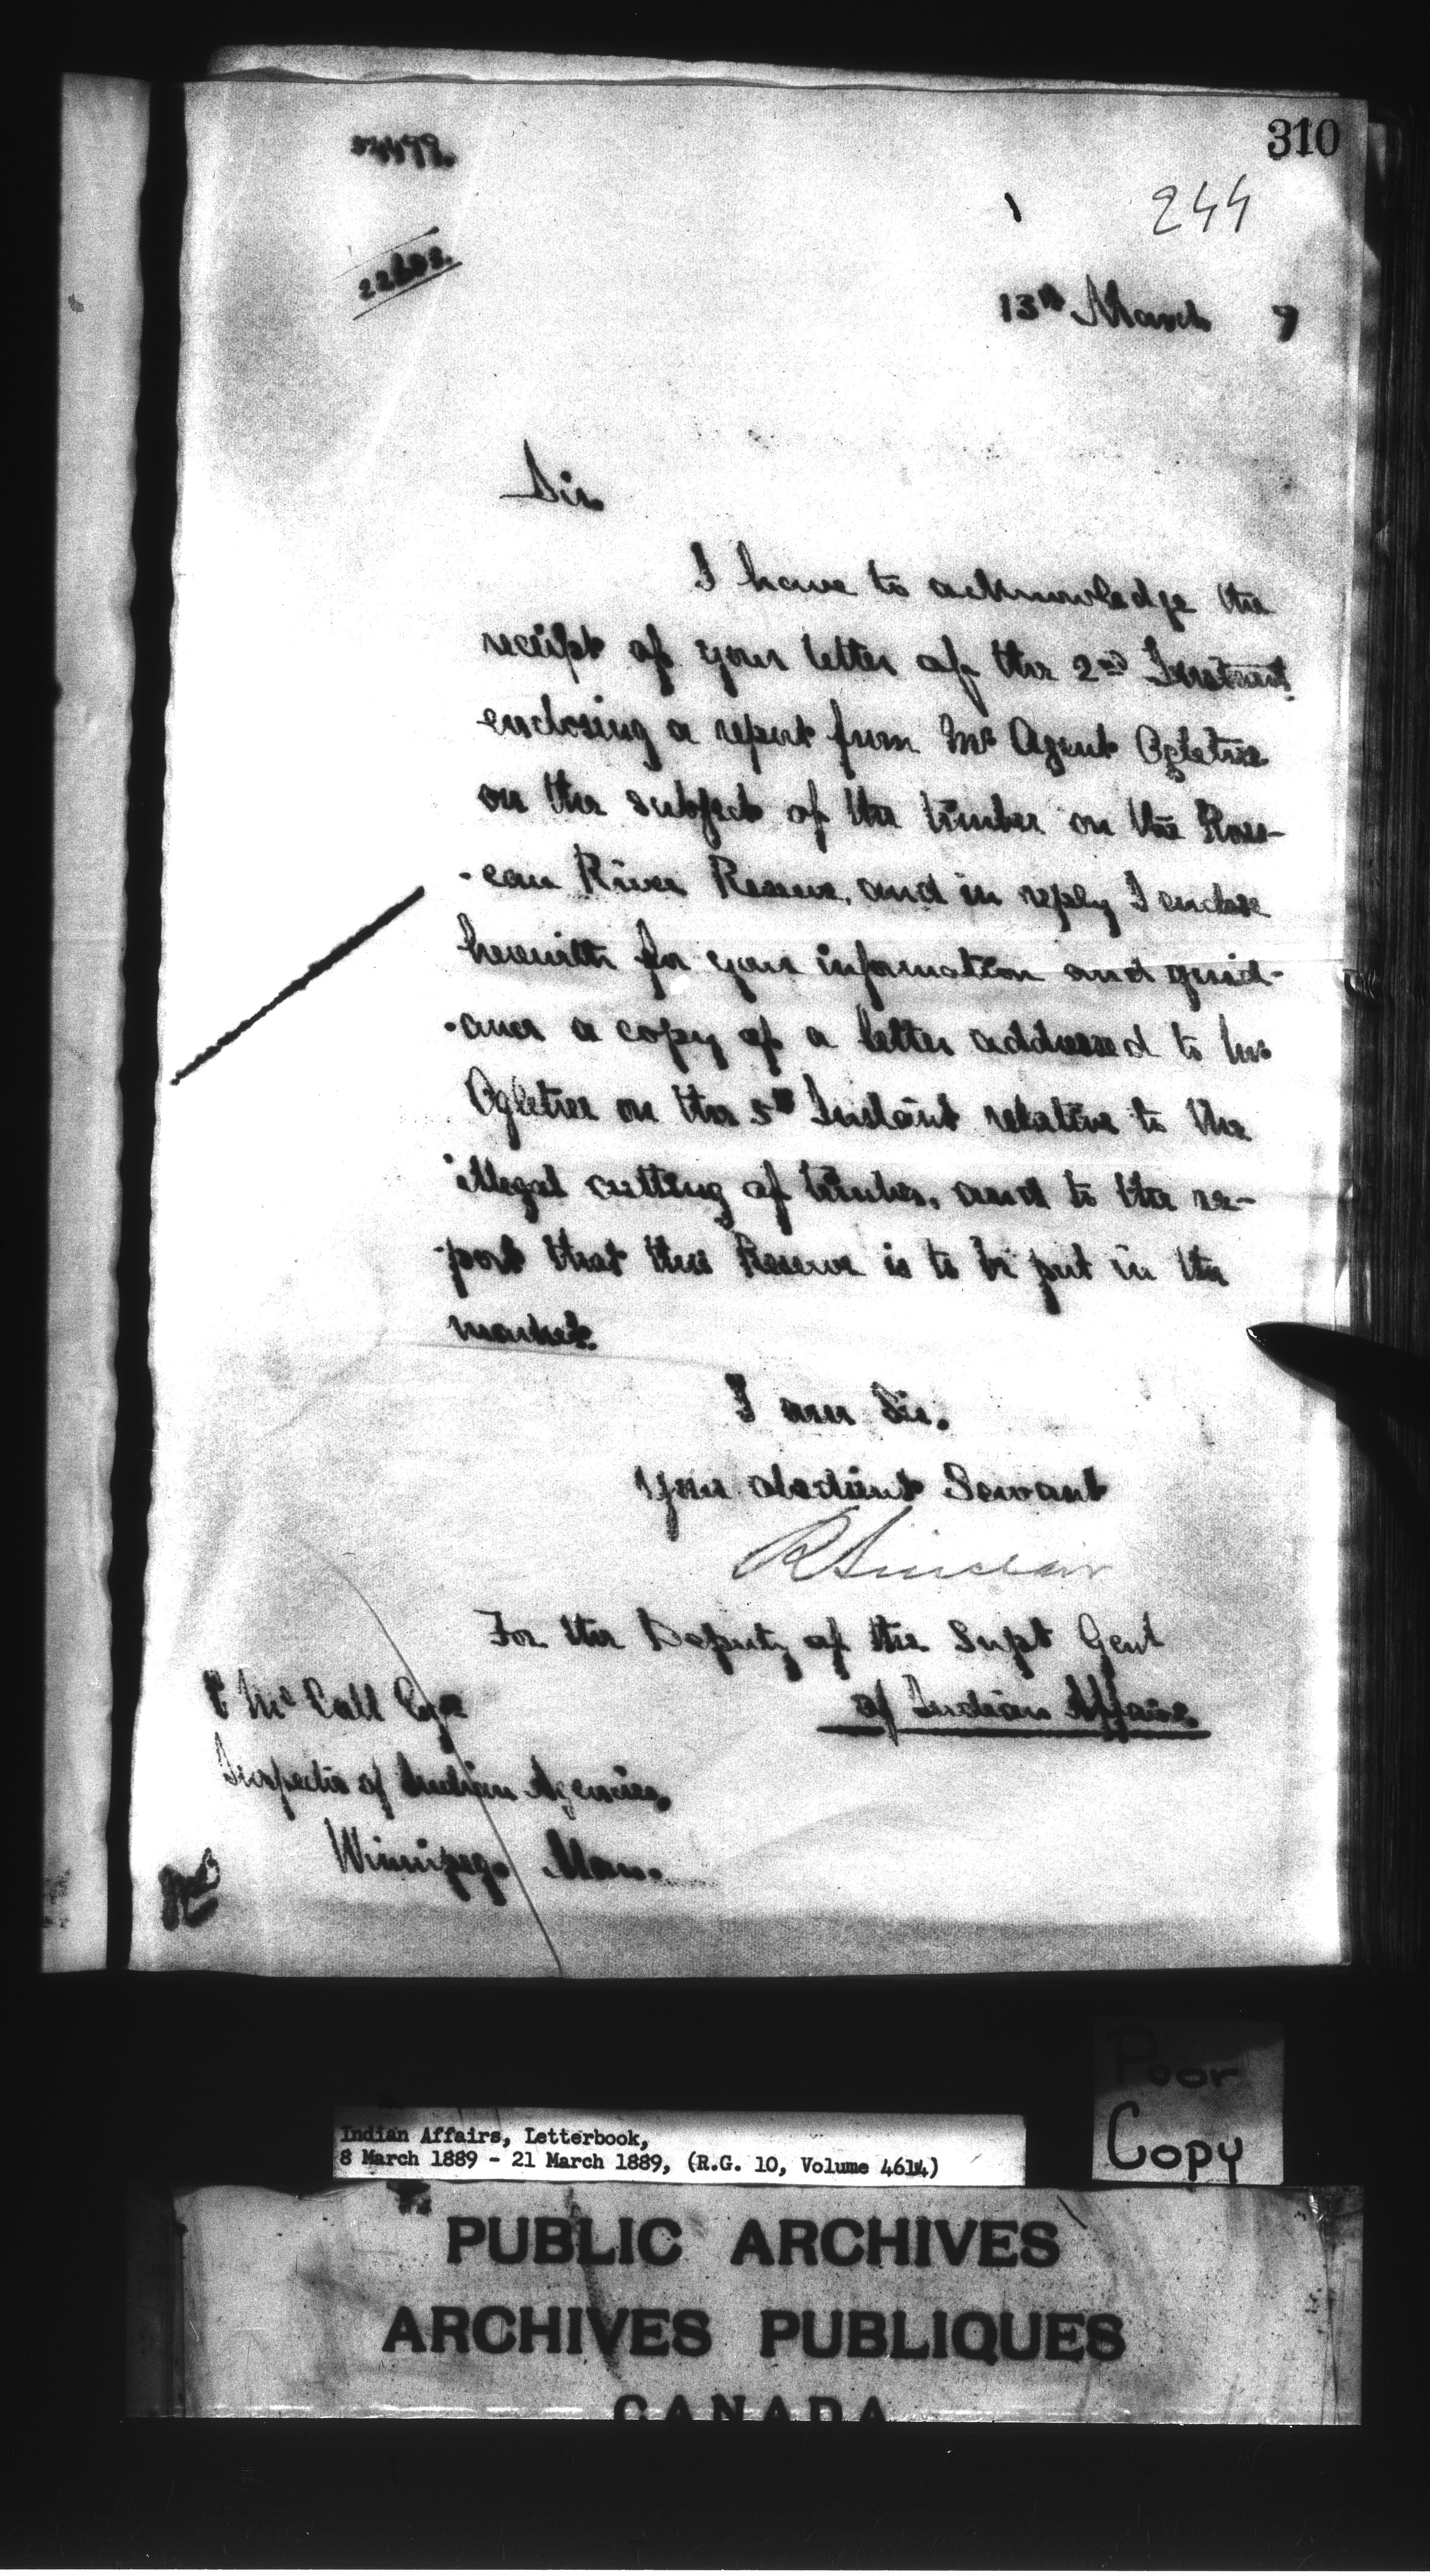 310
244
13th March 9
Sir,
I have to acknowledge the
receipt of your letter of the 2nd Instant
enclosing a report from Mr Agent Ogletree
on the subject of the timber on the Ros-
-eau River Reserve, and in reply I enclose
herewith for your information and guid-
-ance a copy of a letter addressed to Mr
Ogletree on the 5th Instant relative to the
illegal cutting of timber, and to the re-
-port that this Reserve is to be put in the
market.
I am Sir.
Your obedient Servant
R Sinclair
For the Deputy of the Supt Genl
of Indian Affairs
Mc Coll Esqr
Inspector of Indian Agencies,
Winnipeg. Man.
Poor
Copy
Indian Affairs, Letterbook,
8 March 1889 - 21 March 1889, (R.G. 10, Volume 4614)
PUBLIC ARCHIVES
ARCHIVES PUBLIQUES
CANADA